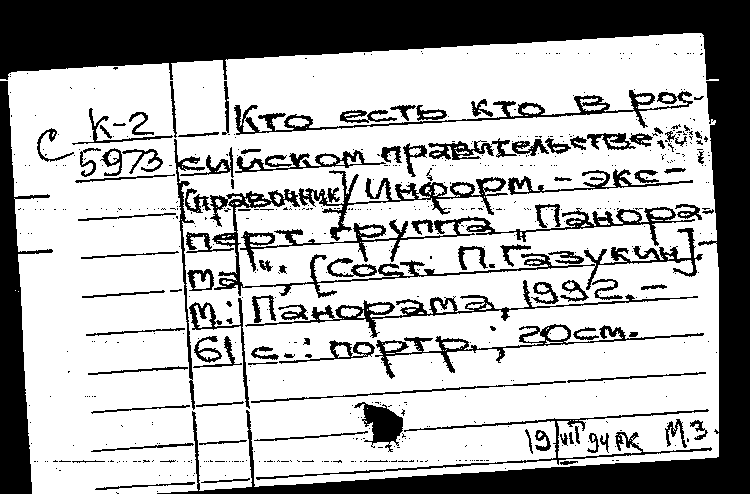 С К-2 Кто есть кто в рос-
5973 сийском правительстве:
[справочник] / Информ. - экс-
перт. группа „Панора-
ма“; [Сост. П. Газукин]. -
М.: Панорама, 1992. -
61 с.: портр.; 20 см.
19/VII 94 М.З.